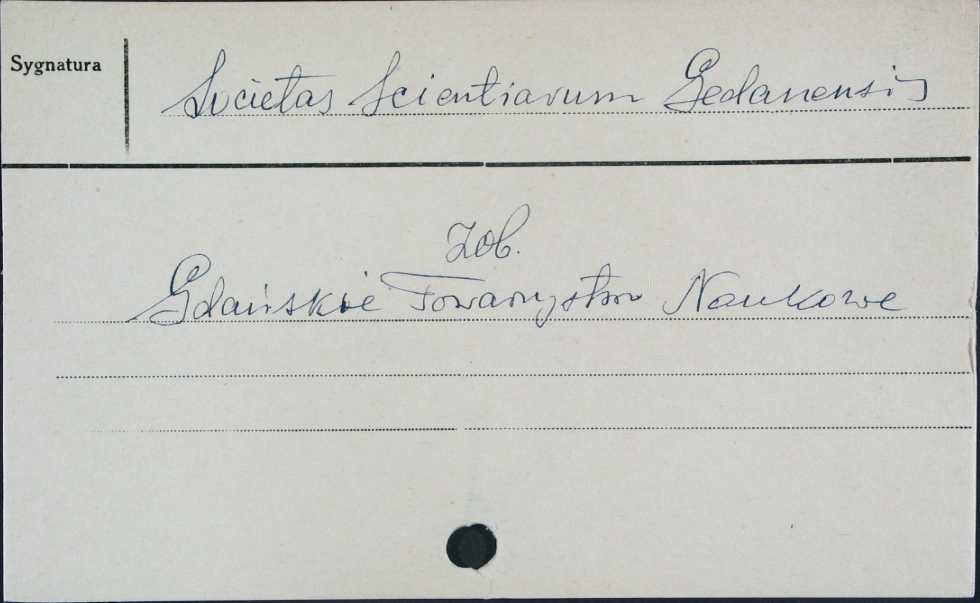 Sygnatura
Societas Scientiarum Gedanensis
Zob.
Gdańskie Towarzystwo Naukowe